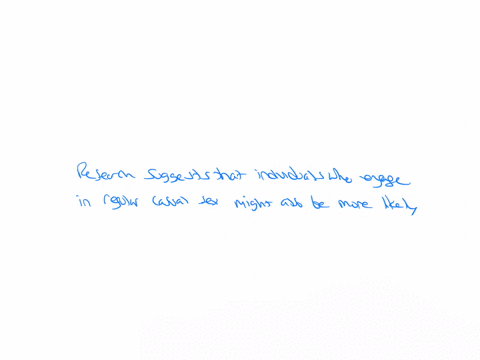 Research suggests that individuals who engage
in regular casual sex might also be more likely